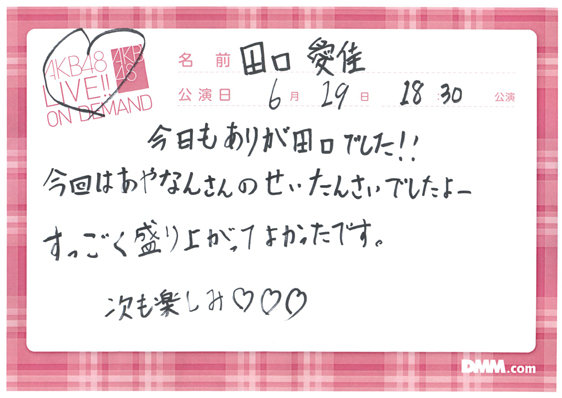 AKB48
LIVE!!
ON DEMAND
AKB
48
名前 田口 愛佳
公演日 6月 19日 18:30 公演
今日もありが田口でした!!
今回はあやなんさんのせいたんさいでしたよー
すっごく盛り上がってよかったです。
次も楽しみ♡♡♡
DMM.com